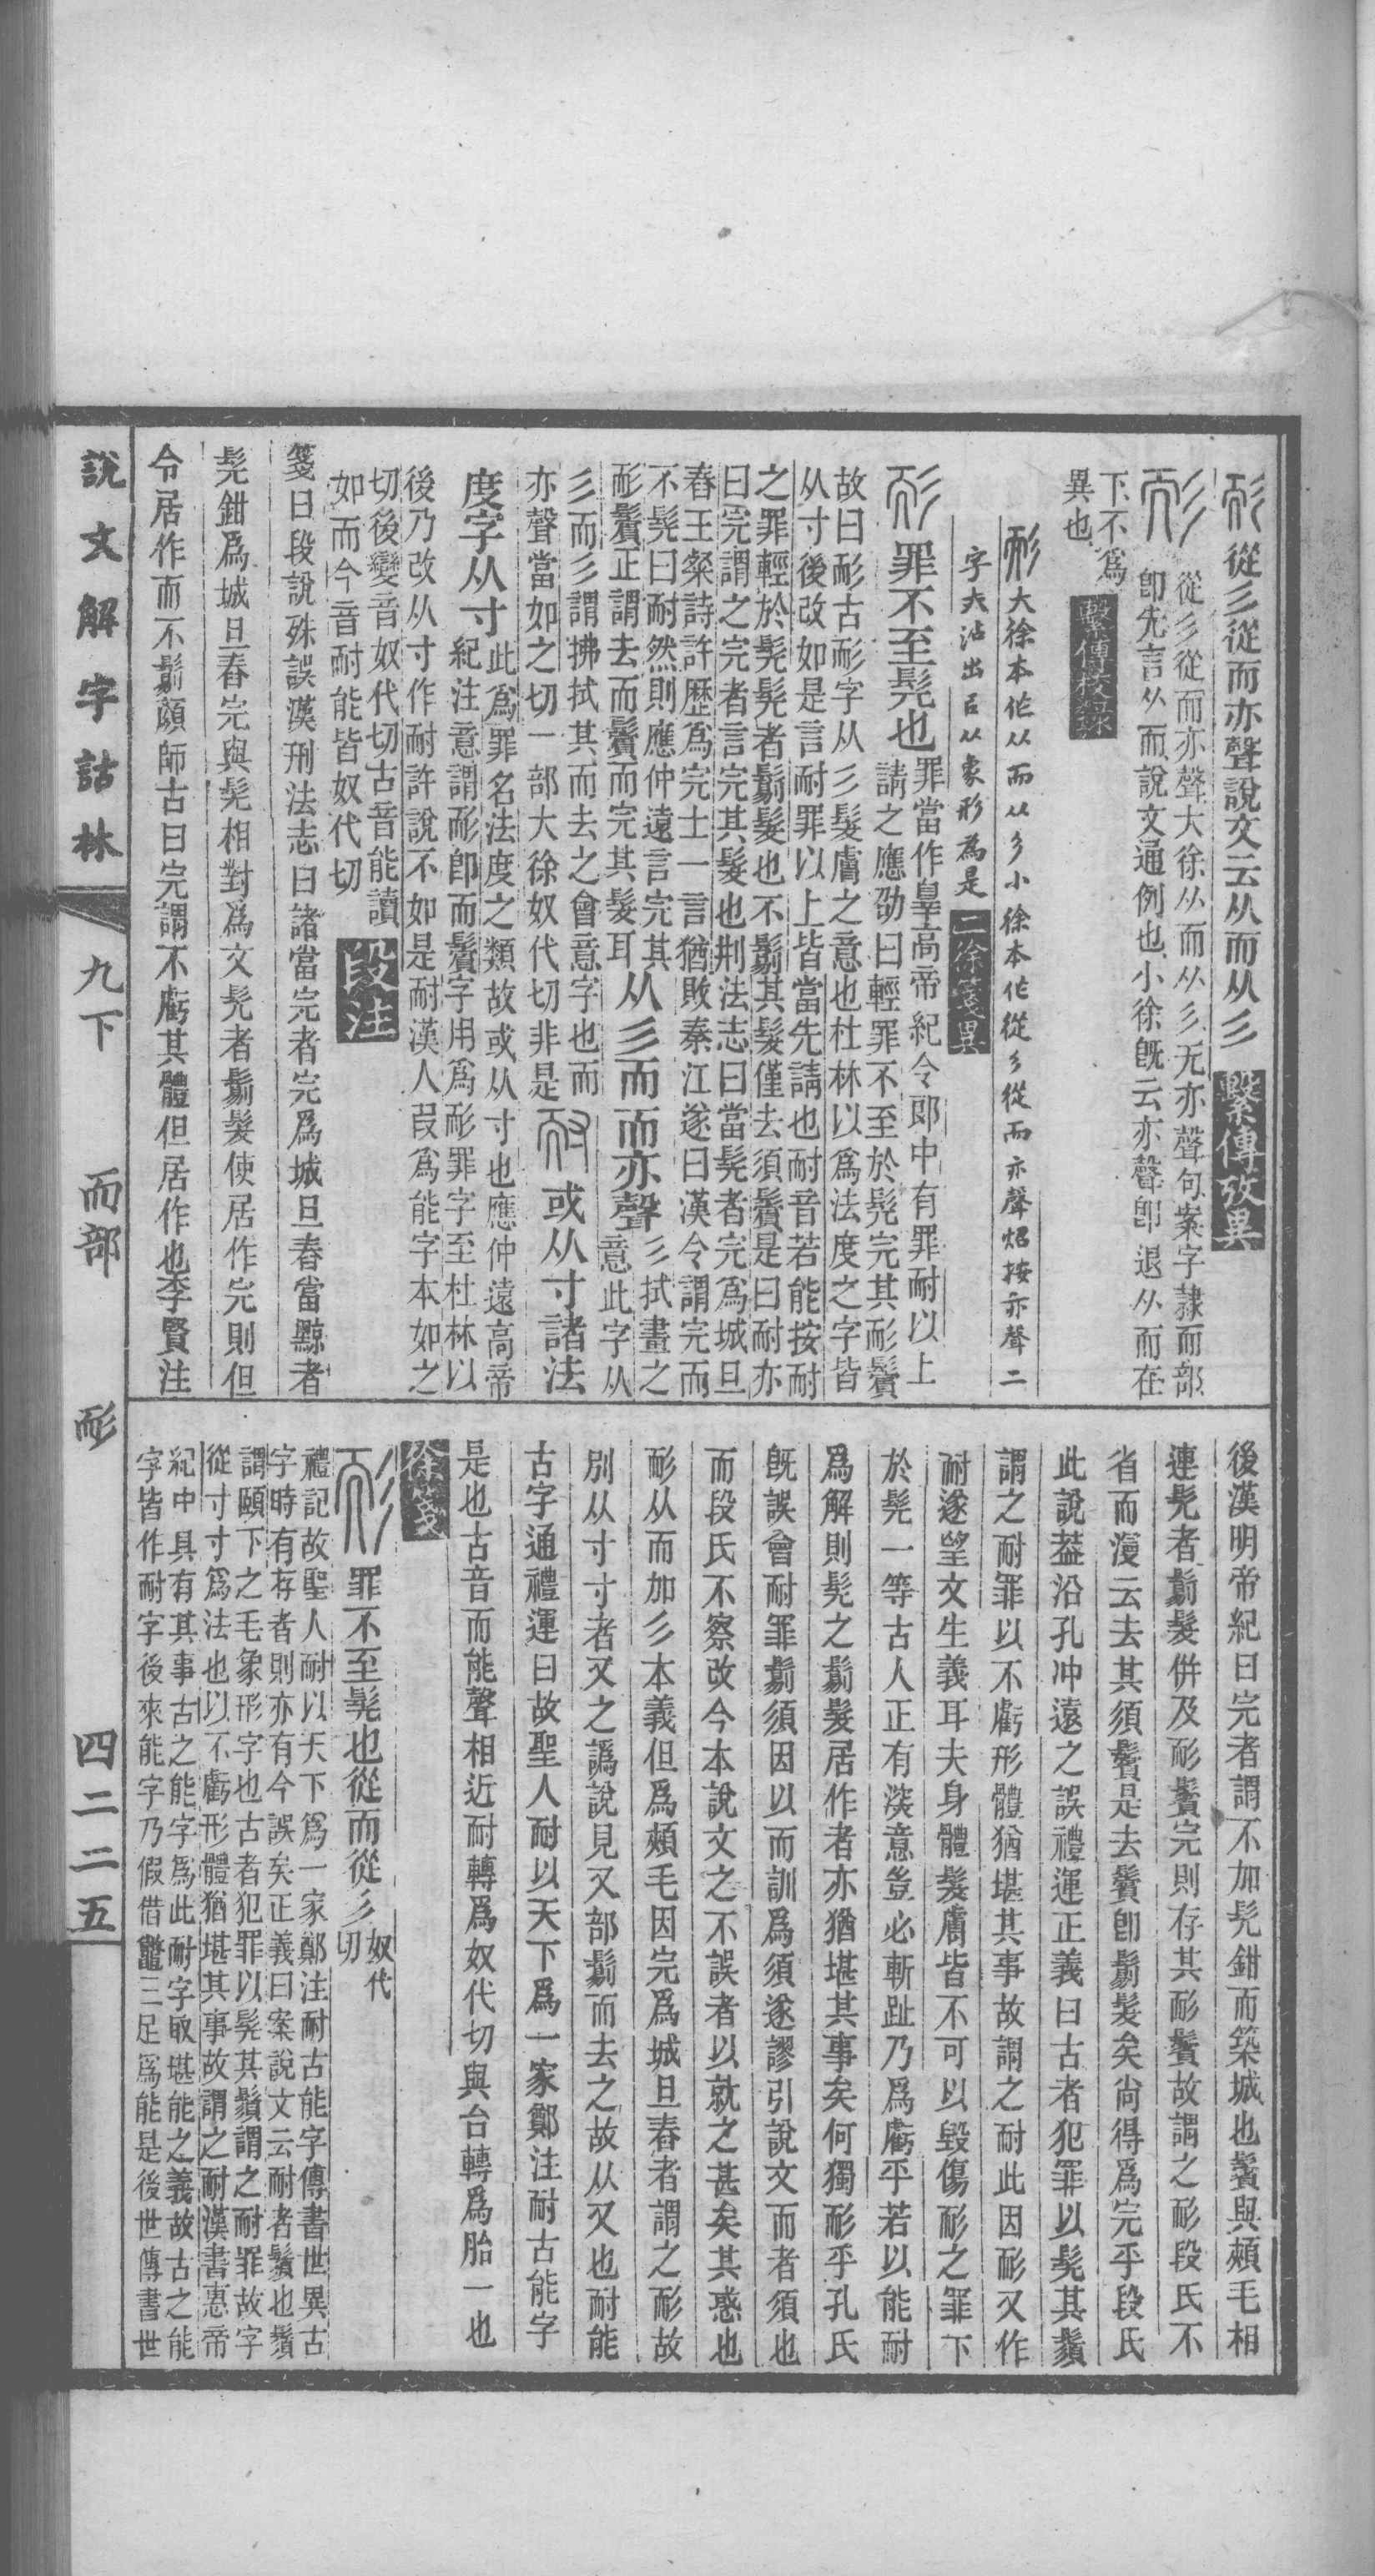 耏從彡從而亦聲說文云从而从彡 繫傳攷異
從彡從而亦聲大徐从而从彡无亦聲句案字隷而部
卽先言从而說文通例也小徐旣云亦聲卽退从而在
下不爲
異也 繫傳校錄
耏大徐本作从而从彡小徐本作從彡從而亦聲炤按亦聲二
字大沾出臣从象形為是 二徐箋異
耏罪不至髡也 罪當作辠高帝紀令郞中有罪耐以上
請之應劭曰輕罪不至於髡完其耏鬢
故曰耏古耏字从彡髮膚之意也杜林以爲法度之字皆
从寸後改如是言耐罪以上皆當先請也耐音若能按耐
之罪輕於髡髡者鬄髮也不鬄其髮僅去須鬢是曰耐亦
曰完謂之完者言完其髮也荆法志曰當髡者完爲城旦
舂王粲詩許歷爲完士一言猶敗秦江遂曰漢令謂完而
不髡曰耐然則應仲遠言完其
耏鬢正謂去而鬢而完其髮耳 从彡而 而亦聲 彡拭畫之
意此字从
彡而彡謂拂拭其而去之會意字也而
亦聲當如之切一部大徐奴代切非是 耐或从寸諸法
度字从寸 此爲罪名法度之類故或从寸也應仲遠高帝
紀注意謂耏卽而鬢字用爲耏罪字至杜林以
後乃改从寸作耐許說不如是耐漢人叚爲能字本如之
切後變音奴代切古音能讀
如而今音耐能皆奴代切 段注
箋曰段說殊誤漢刑法志曰諸當完者完爲城旦舂當黥者
髡鉗爲城旦舂完與髡相對爲文髡者鬄髮使居作完則但
令居作而不鬄顔師古曰完謂不虧其體但居作也李賢注
後漢明帝紀曰完者謂不加髡鉗而築城也鬢與頰毛相
連髡者鬄髮併及耏鬢完則存其耏鬢故謂之耏段氏不
省而漫云去其須鬢是去鬢卽鬄髮矣尙得爲完乎段氏
此說葢沿孔冲遠之誤禮運正義曰古者犯罪以髡其鬚
謂之耐罪以不虧形體猶堪其事故謂之耐此因耏又作
耐遂望文生義耳夫身體髮膚皆不可以毀傷耏之罪下
於髡一等古人正有深意豈必斬趾乃爲虧乎若以能耐
爲解則髡之鬄髮居作者亦猶堪其事矣何獨耏乎孔氏
旣誤會耐罪鬄須因以而訓爲須遂謬引說文而者須也
而段氏不察改今本說文之不誤者以就之甚矣其惑也
耏从而加彡本義但爲頰毛因完爲城旦舂者謂之耏故
別从寸寸者又之譌說見又部鬄而去之故从又也耐能
古字通禮運曰故聖人耐以天下爲一家鄭注耐古能字
是也古音而能聲相近耐轉爲奴代切與台轉爲胎一也
徐箋
耏罪不至髡也從而從彡 奴代
切
禮記故聖人耐以天下爲一家鄭注耐古能字傳書世異古
字時有存者則亦有今誤矣正義曰案說文云耐者鬚也鬚
謂頤下之毛象形字也古者犯罪以髡其鬚謂之耐罪故字
從寸寸爲法也以不虧形體猶堪其事故謂之耐漢書惠帝
紀中具有其事古之能字爲此耐字取堪能之義故古之能
字皆作耐字後來能字乃假借鼈三足爲能是後世傳書世
說文解字詁林 九下 而部 耏 四二二五